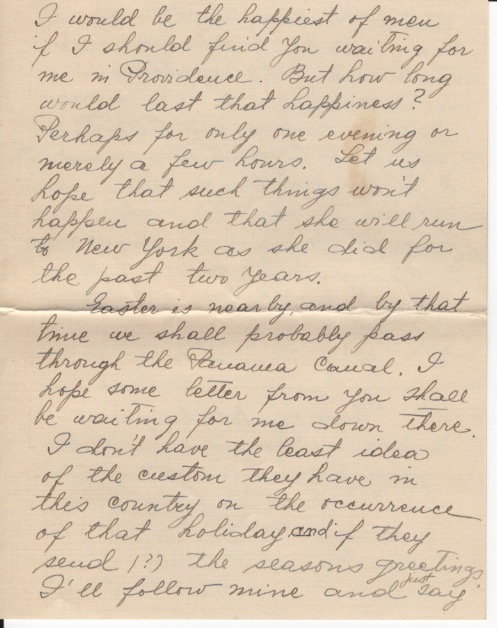 I would be the happiest of men
if I should find you waiting for
me in Providence. But how long
would last that happiness?
Perhaps for only one evening or
merely a few hours. Let us
hope that such things won't
happen and that she will run
to New York as she did for
the past two years.
Easter is nearby, and by that
time we shall probably pass
through the Panama Canal. I
hope some letter from you shall
be waiting for me down there.
I don't have the least idea
of the custom they have in
this country on the occurrence
of that holiday and if they
send (?) the seasons greetings
I'll follow mine and just say